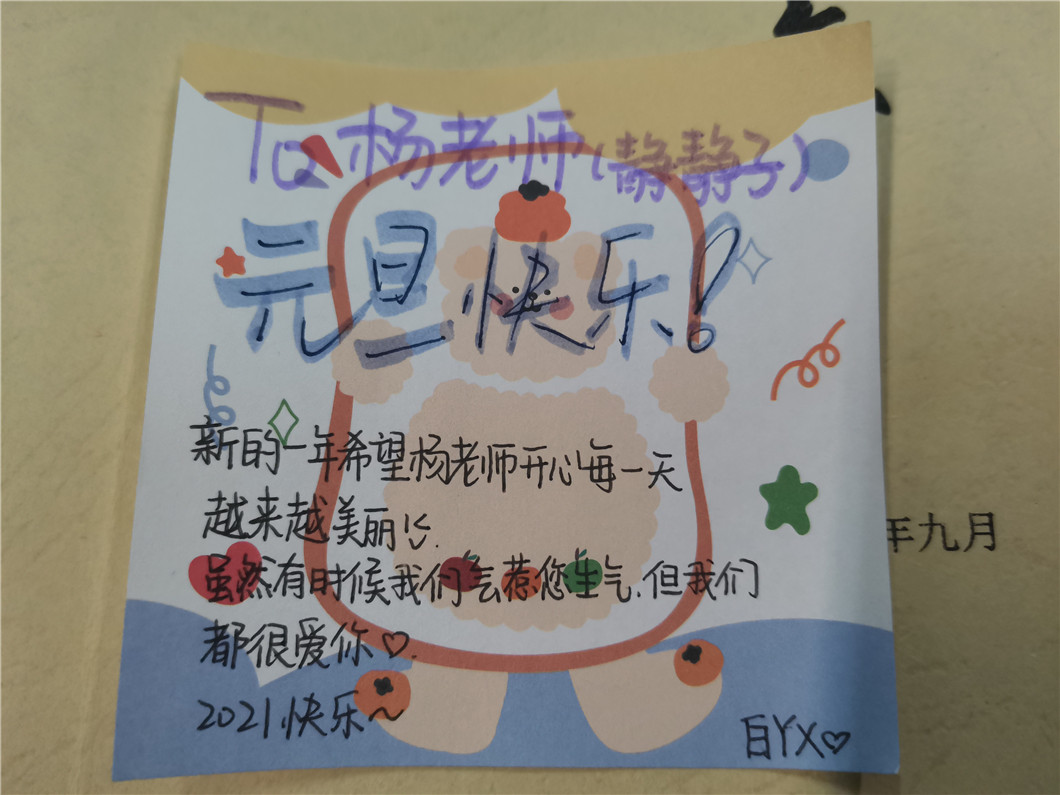 To 杨老师(静静子)
元旦快乐!
新的一年希望杨老师开心每一天
越来越美丽
虽然有时候我们会惹您生气.但我们
都很爱你♡.
2021.快乐~
白YX♡
年九月